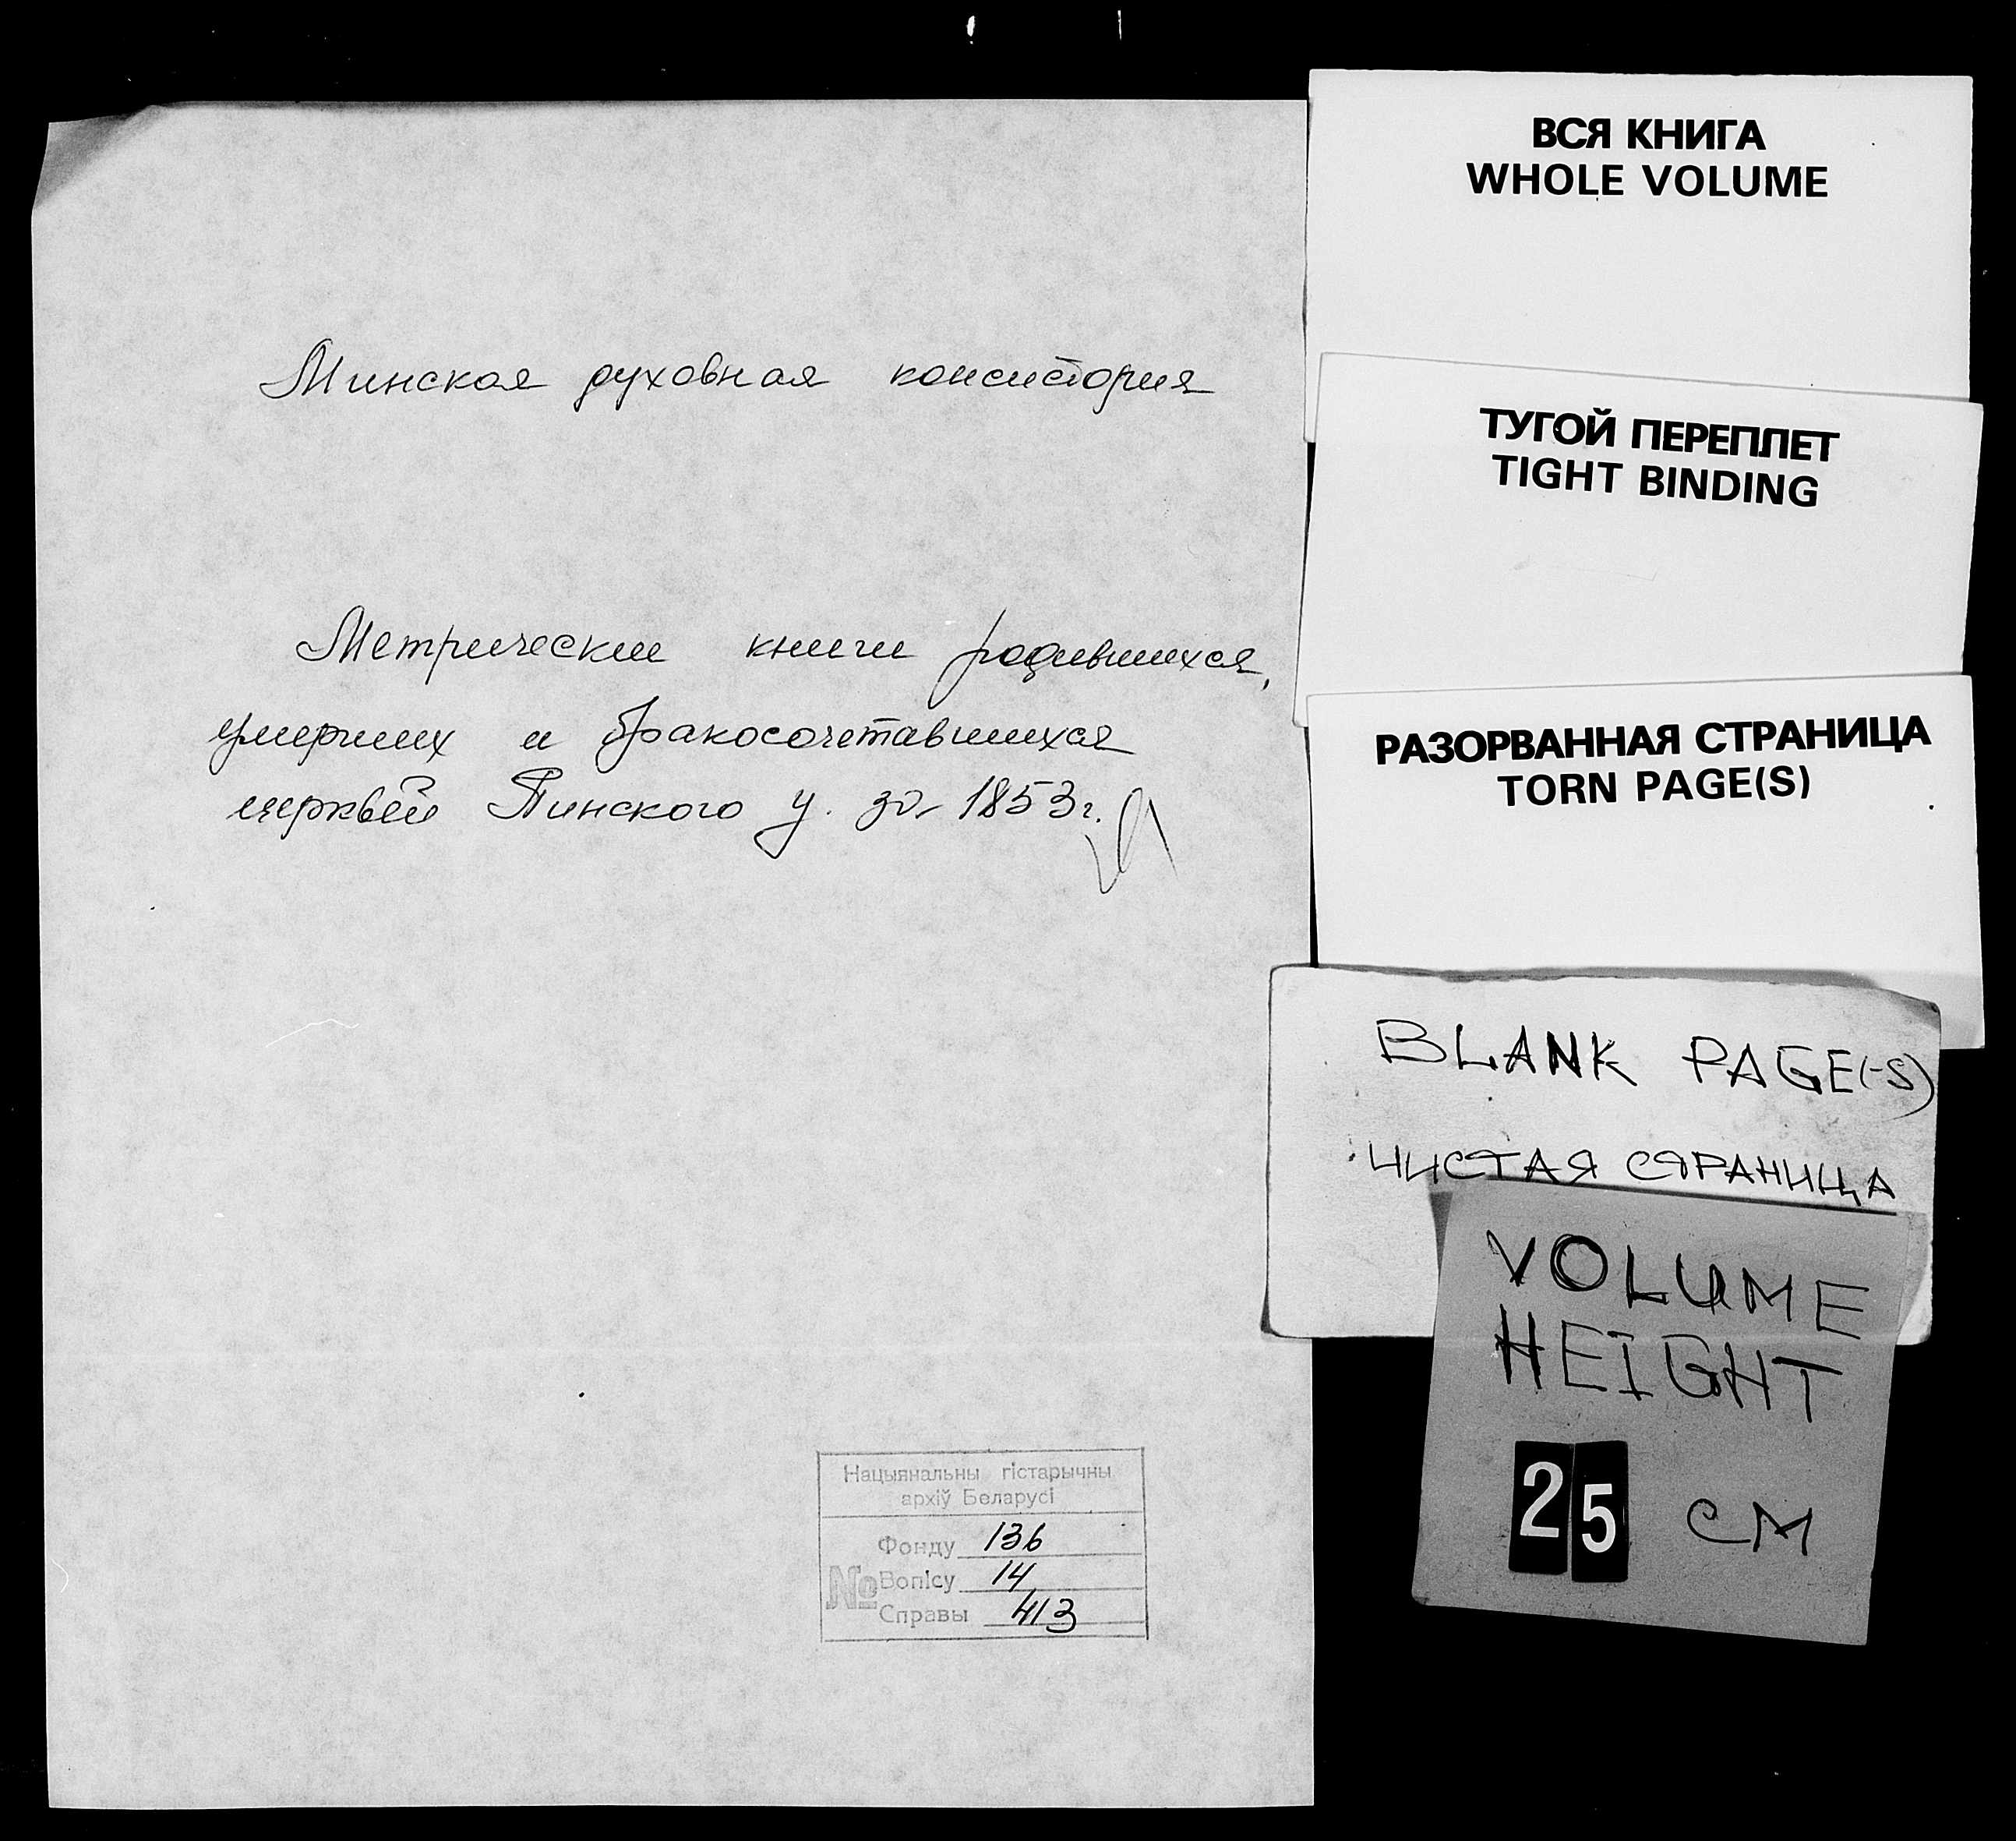 Минская духовная консистория
Метрические книги родившихся,
умерших и бракосочетавшихся
церквей Пинского у. за 1853г.
Нацыянальны гістарычны
архіў Беларусі
Фонду 136
№ Вопісу 14
Справы 413
ВСЯ КНИГА
WHOLE VOLUME
ТУГОЙ ПЕРЕПЛЕТ
TIGHT BINDING
РАЗОРВАННАЯ СТРАНИЦА
TORN PAGE(S)
BLANK PAGE(-S)
ЧИСТАЯ СТРАНИЦА
VOLUME
HEIGHT
25 CM